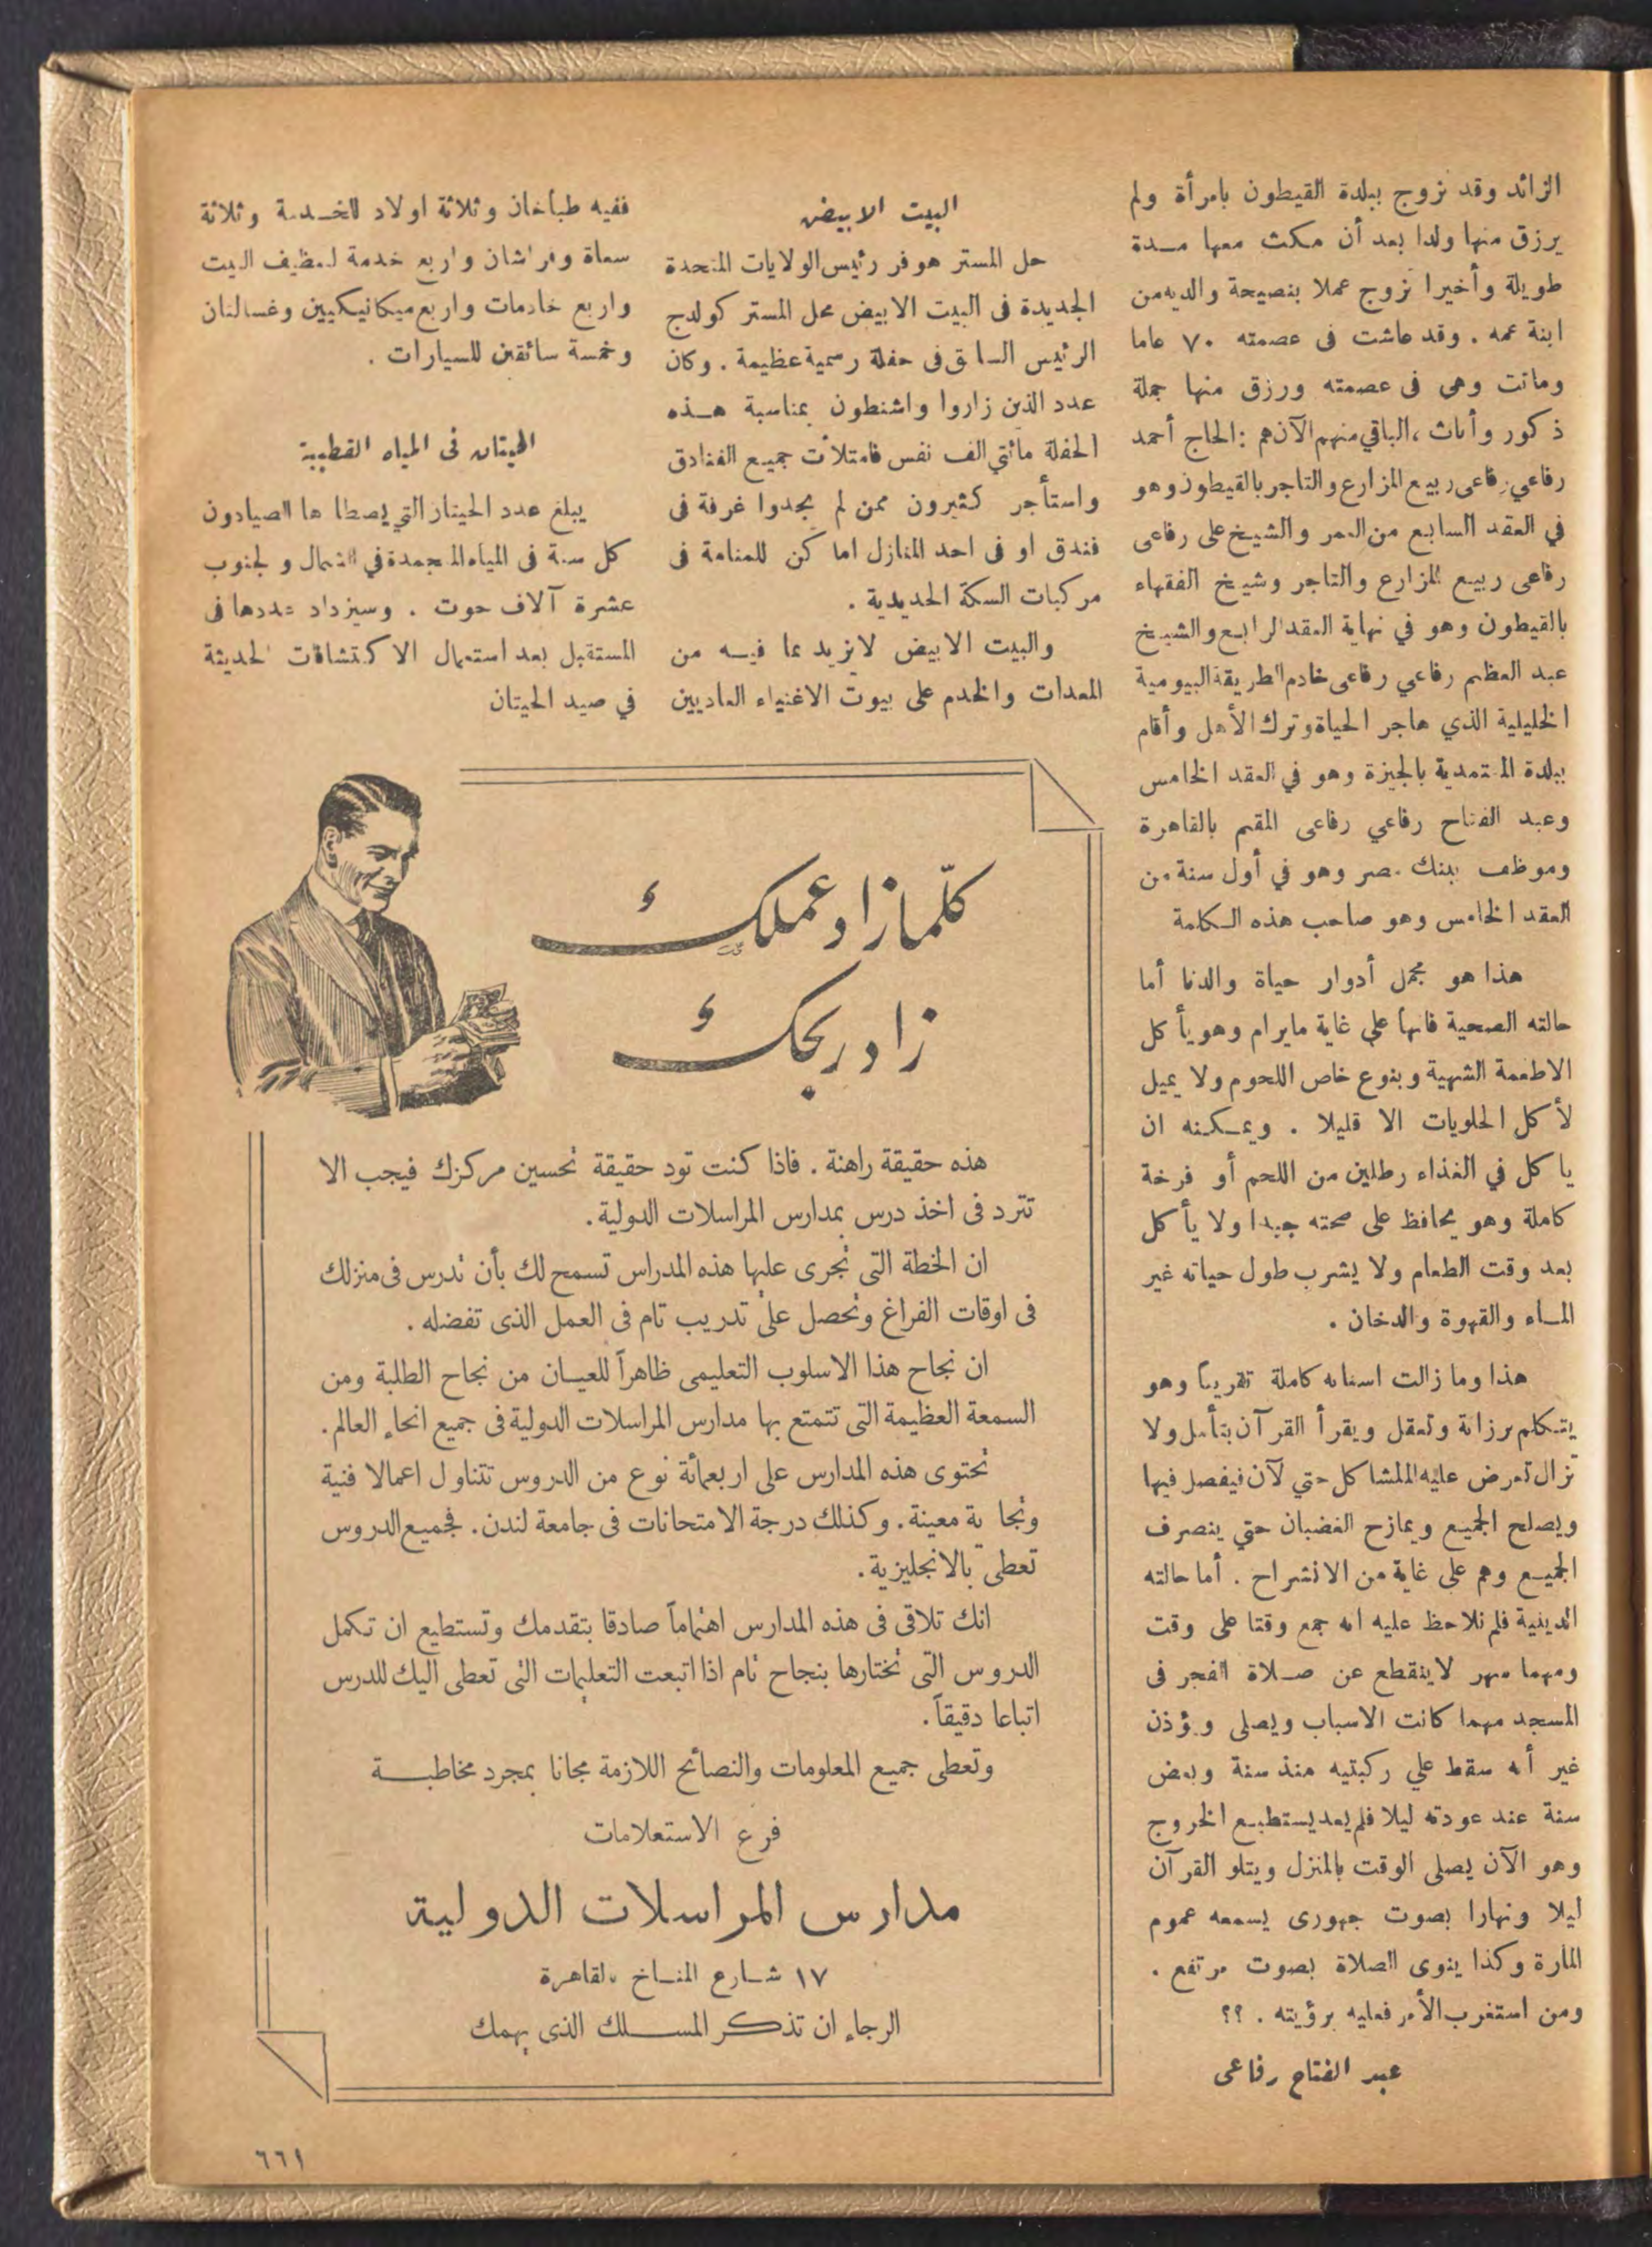 الزائد وقد تزوج ببلدة القيطون بامرأة ولم
يرزق منها ولدا بعد أن مكث معها مدة
طويلة وأخيرا تزوج عملا بنصيحة والديه من
ابنة عمه . وقد عاشت فى عصمته ٧٠ عاما
وماتت وهى فى عصمته ورزق منها جملة
ذكور وأناث ، الباقي منهم الآن هم : الحاج أحمد
رفاعي رفاعى ربيع المزارع والتاجر بالقيطون وهو
في العقد السابع من العمر والشيخ على رفاعى
رفاعى ربيع المزارع والتاجر وشيخ الفقهاء
بالقيطون وهو في نهاية العقد الرابع والشيخ
عبد العظيم رفاعي رفاعى خادم الطريقة البيومية
الخليلية الذي هاجر الحياة وترك الأهل وأقام
ببلدة المتمدية بالجيزة وهو في العقد الخامس
وعبد الفتاح رفاعي رفاعى المقيم بالقاهرة
وموظف ببنك مصر وهو في أول سنة من
العقد الخامس وهو صاحب هذه الكلمة
هذا هو مجمل أدوار حياة والدنا أما
حالته الصحية فانها على غاية مايرام وهو يأكل
الاطعمة الشهية وبنوع خاص اللحوم ولا يميل
لأكل الحلويات الا قليلا . ويمكنه ان
ياكل في الغذاء رطلين من اللحم أو فرخة
كاملة وهو يحافظ على صحته جيدا ولا يأكل
بعد وقت الطعام ولا يشرب طول حياته غير
الماء والقهوة والدخان .
هذا وما زالت اسنانه كاملة تقريبا وهو
يتكلم برزانة وتعقل ويقرأ القرآن بتأمل ولا
تزال تعرض عليه المشاكل حتي لآن فيفصل فيها
ويصلح الجميع ويمازح الغضبان حتي ينصرف
الجميع وهم على غاية من الانشراح . أما حالته
الدينية فلم نلاحظ عليه انه جمع وقتا على وقت
ومهما سهر لاينقطع عن صلاة الفجر فى
المسجد مهما كانت الاسباب ويصلى ويؤذن
غير أنه سقط علي ركبتيه منذ سنة وبعض
سنة عند عودته ليلا فلم يعد يستطيع الخروج
وهو الآن يصلى الوقت بالمنزل ويتلو القرآن
ليلا ونهارا بصوت جهورى يسمعه عموم
المارة وكذا ينوى الصلاة بصوت مرتفع .
ومن استغرب الأمر فعليه برؤيته . ؟؟
عبد الفتاح رفاعى
البيت الابيض
حل المستر هوفر رئيس الولايات المتحدة
الجديدة فى البيت الابيض محل المستر كولدج
الرئيس السابق فى حفلة رسمية عظيمة . وكان
عدد الذين زاروا واشنطون بمناسبة هذه
الحفلة مائتي الف نفس فامتلأت جميع الفنادق
واستأجر كثيرون ممن لم يجدوا غرفة فى
فندق او فى احد المنازل اماكن للمنامة فى
مركبات السكة الحديدية .
والبيت الابيض لانزيد عما فيه من
المعدات والخدم على بيوت الاغنياء العاديين
ففيه طباخان وثلاثة اولاد للخدمة وثلاثة
سعاة وفراشان واربع خدمة لتنظيف البيت
واربع خادمات واربع ميكانيكيين وغسالتان
وخمسة سائقين للسيارات .
الحيتان فى المياه القطبية
يبلغ عدد الحيتان التي يصطادها الصيادون
كل سنة فى المياه المتجمدة في الشمال والجنوب
عشرة آلاف حوت . وسيزداد عددها فى
المستقبل بعد استعمال الاكتشافات الحديثة
في صيد الحيتان
كلّما زاد عملك
زاد ربحك
هذه حقيقة راهنة . فاذا كنت تود حقيقة تحسين مركزك فيجب الا
تترد فى اخذ درس بمدارس المراسلات الدولية .
ان الخطة التى تجرى عليها هذه المدراس تسمح لك بأن تدرس فى منزلك
فى اوقات الفراغ وتحصل على تدريب تام فى العمل الذى تفضله .
ان نجاح هذا الاسلوب التعليمى ظاهراً للعيان من نجاح الطلبة ومن
السمعة العظيمة التى تتمتع بها مدارس المراسلات الدولية فى جميع انحاء العالم .
تحتوى هذه المدارس على اربعمائة نوع من الدروس تتناول اعمالا فنية
وتجارية معينة . وكذلك درجة الامتحانات فى جامعة لندن . فجميع الدروس
تعطى بالانجليزية .
انك تلاقى فى هذه المدارس اهتماماً صادقا بتقدمك وتستطيع ان تكمل
الدروس التى تختارها بنجاح تام اذا اتبعت التعليمات التى تعطى اليك للدرس
اتباعا دقيقاً .
وتعطى جميع المعلومات والنصائح اللازمة مجانا بمجرد مخاطبة
فرع الاستعلامات
مدارس المراسلات الدولية
١٧ شارع المناخ بالقاهرة
الرجاء ان تذكر المسلك الذى يهمك
٦٦١